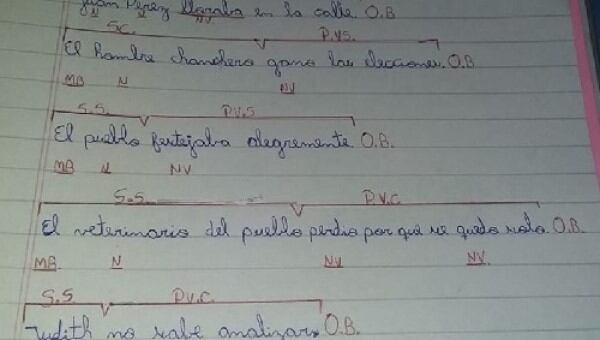 Juan Pérez lloraba en la calle. O.B
N N NV
S.C. P.V.S.
El hombre chanchero gano las elecciones. O.B
MB N NV
S.S. P.V.S
El pueblo festejaba alegremente. O.B.
MB N NV
S.S. P.V.C
El veterinario del pueblo perdio por qué se quedo solo. O.B.
MB. N NV NV.
S.S P.V.C.
Judith no sabe analizar. O.B.